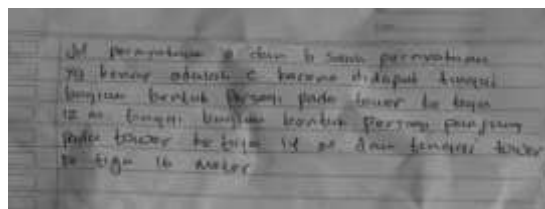 pernyataan a dan b sama pernyataan
yg benar adalah c karena didapat tinggi
bagian bentuk persegi pada tower ke tiga
12 m. tinggi bagian bentuk persegi panjang
pada tower ke tiga m. dan tinggi tower
ke tiga 16 meter